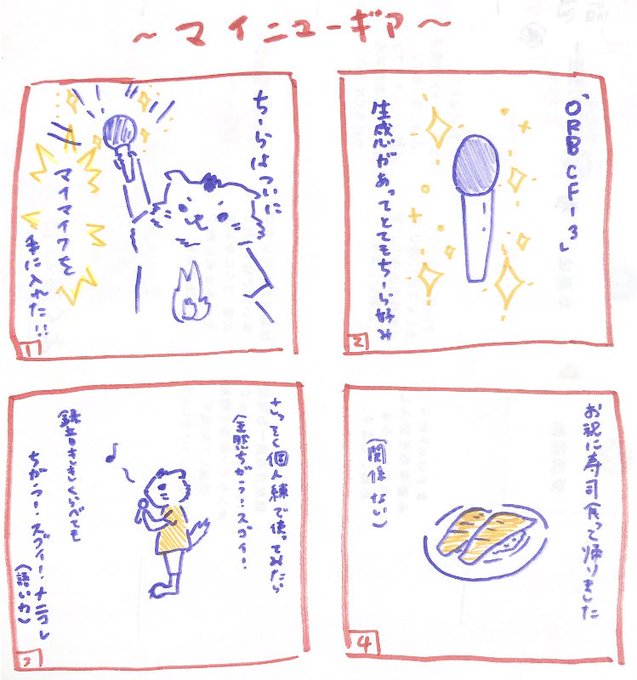 ～マイニューギア～
ちーらはついに
マイマイクを
手に入れた!!
1
「ORB CF-3」
生感があってとてもちーら好み
2
さっそく個人練で使ってみたら
全然ちがう!スゴイ!
録音ききくらべても
ちがう!スゴイ!ナニコレ
(語い力)
3
お祝に寿司食って帰りました
(関係ない)
4